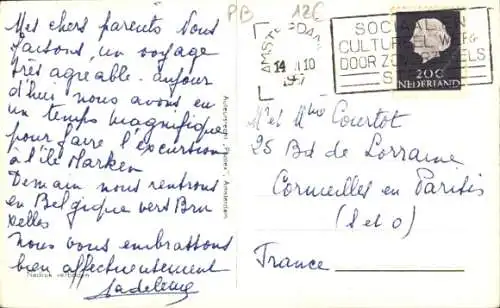 Mes chers parents Nous
faisons, un voyage
très agreable. aujour
d'hui nous avons eu
un temps magnifique
pour faire l'excursion
à l'île Marken
Demain nous rentrons
en Belgique vers Bru
xelles
nous vous embrassons
bien affectueusement
Madeleine
Nadruk verboden
Amsterdam
PB 12€
AMSTERDAM
14 10
SOC
CULTUREEL WERK
DOOR ZOMERZEGELS
20C
NEDERLAND
Mr et Mme Courtot
25 Bd de Lorraine
Cormeilles en Parisis
(S et O)
France